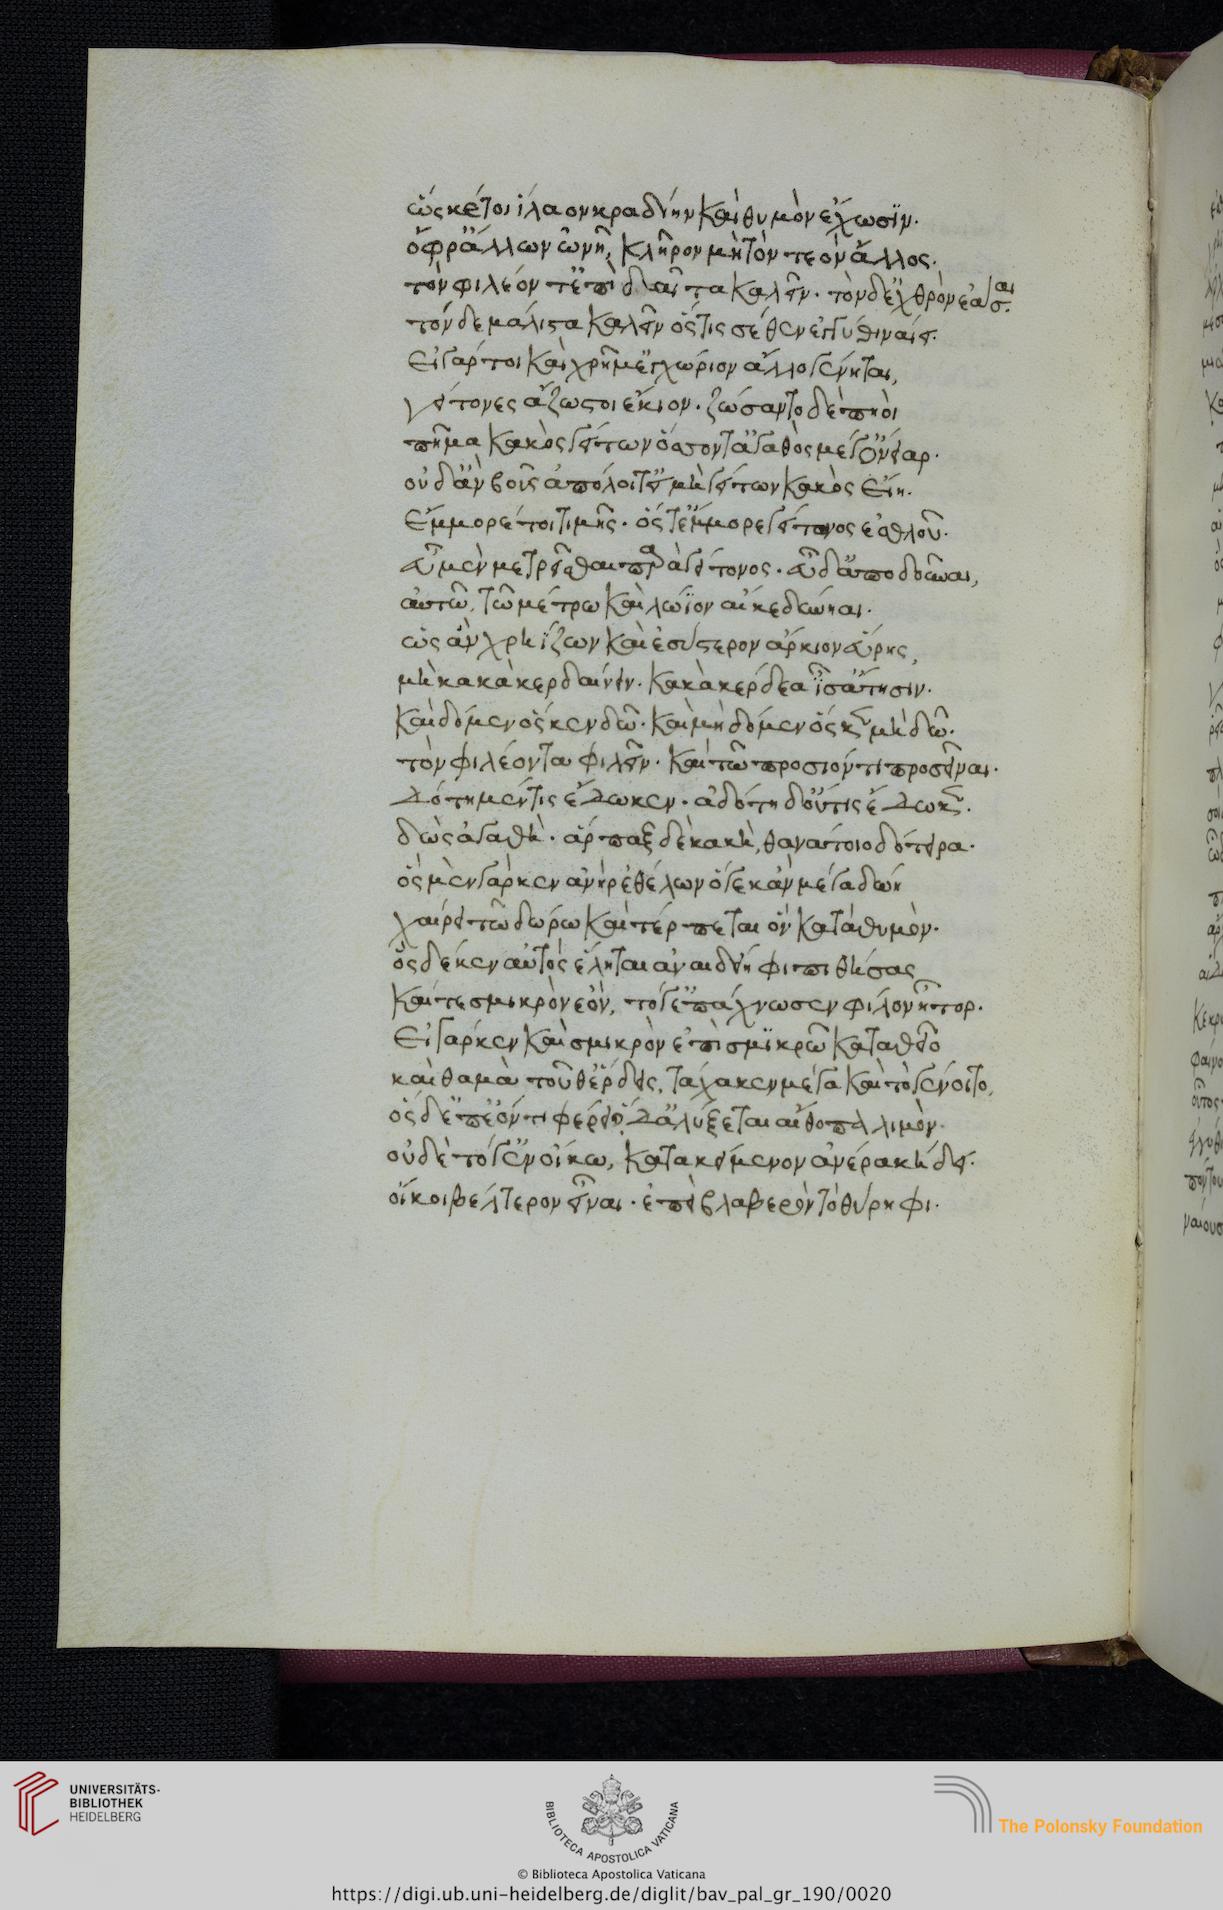 ὥς κέ τοι ἵλαον κραδίην καὶ θυμὸν ἔχωσϊν·
ὄφρ' ἄλλων ὠνῇ, κλῆρον μὴ τὸν τεὸν ἄλλος·
τὸν φιλέοντ' ἐπὶ δαῖτα καλεῖν· τὸν δ' ἐχθρὸν ἐᾶσαι·
τόν δε μάλιστα καλεῖν ὅστις σέθεν ἐγγύθι ναίει·
εἰ γάρ τοι καὶ χρῆμ' ἐγχώριον ἄλλο γένηται,
γείτονες ἄζωστοι ἔκιον· ζώσαντο δὲ πηοὶ
πῆμα κακὸς γείτων ὅσσον τ' ἀγαθὸς μέγ' ὄνειαρ·
οὐδ' ἂν βοῦς ἀπόλοιτ' εἰ μὴ γείτων κακὸς εἴη·
ἔμμορέ τοι τιμῆς· ὅς τ' ἔμμορε γείτονος ἐσθλοῦ·
εὖ μὲν μετρεῖσθαι παρὰ γείτονος· εὖ δ' ἀποδοῦναι,
αὐτῶ, τῶ μέτρω καὶ λώϊον αἴ κε δύνηαι·
ὡς ἂν χρηΐζων καὶ ἐσύστερον ἄρκιον εὕρης,
μὴ κακὰ κερδαίνειν· κακὰ κέρδεα ἶσ' ἄτησιν·
καὶ δόμεν ὅς κεν δῶ· καὶ μὴ δόμεν ὅς κεν μὴ δῶ·
τὸν φιλέοντα φιλεῖν· καὶ τῶ προσιόντι προσεῖναι·
δότη μέν τις ἔδωκεν· ἀδότη δ' οὔτις ἔδωκεν·
δὼς ἀγαθὴ· ἅρπαξ δὲ κακὴ, θανάτοιο δότειρα·
ὃς μὲν γάρ κεν ἀνὴρ ἐθέλων ὅγε κἂν μέγα δώη
χαίρει τῶ δώρω καὶ τέρπεται ὃν κατὰ θυμὸν·
ὃς δέ κεν αὐτὸς ἕληται ἀναιδείηφι πιθήσας
καί τε σμικρὸν ἐὸν, τό γ' ἐπάχνωσεν φίλον ἦτορ·
εἰ γάρ κεν καὶ σμικρὸν ἐπὶ σμϊκρῶ καταθεῖο
καὶ θαμὰ τοῦθ' ἕρδεις, τάχα κεν μέγα καὶ τὸ γένοιτο,
ὃς δ' ἐπ' ἐόντι φέρει, ὃ δ' ἀλύξεται αἴθοπα λιμὸν·
οὐδὲ τό γ' ἐν οἴκω, κατακείμενον ἀνέρα κήδει·
οἴκοι βέλτερον εἶναι· ἐπεὶ βλαβερὸν τὸ θύρηφι·
UNIVERSITÄTS-
BIBLIOTHEK
HEIDELBERG
BIBLIOTECA APOSTOLICA VATICANA
The Polonsky Foundation
© Biblioteca Apostolica Vaticana
https://digi.ub.uni-heidelberg.de/diglit/bav_pal_gr_190/0020